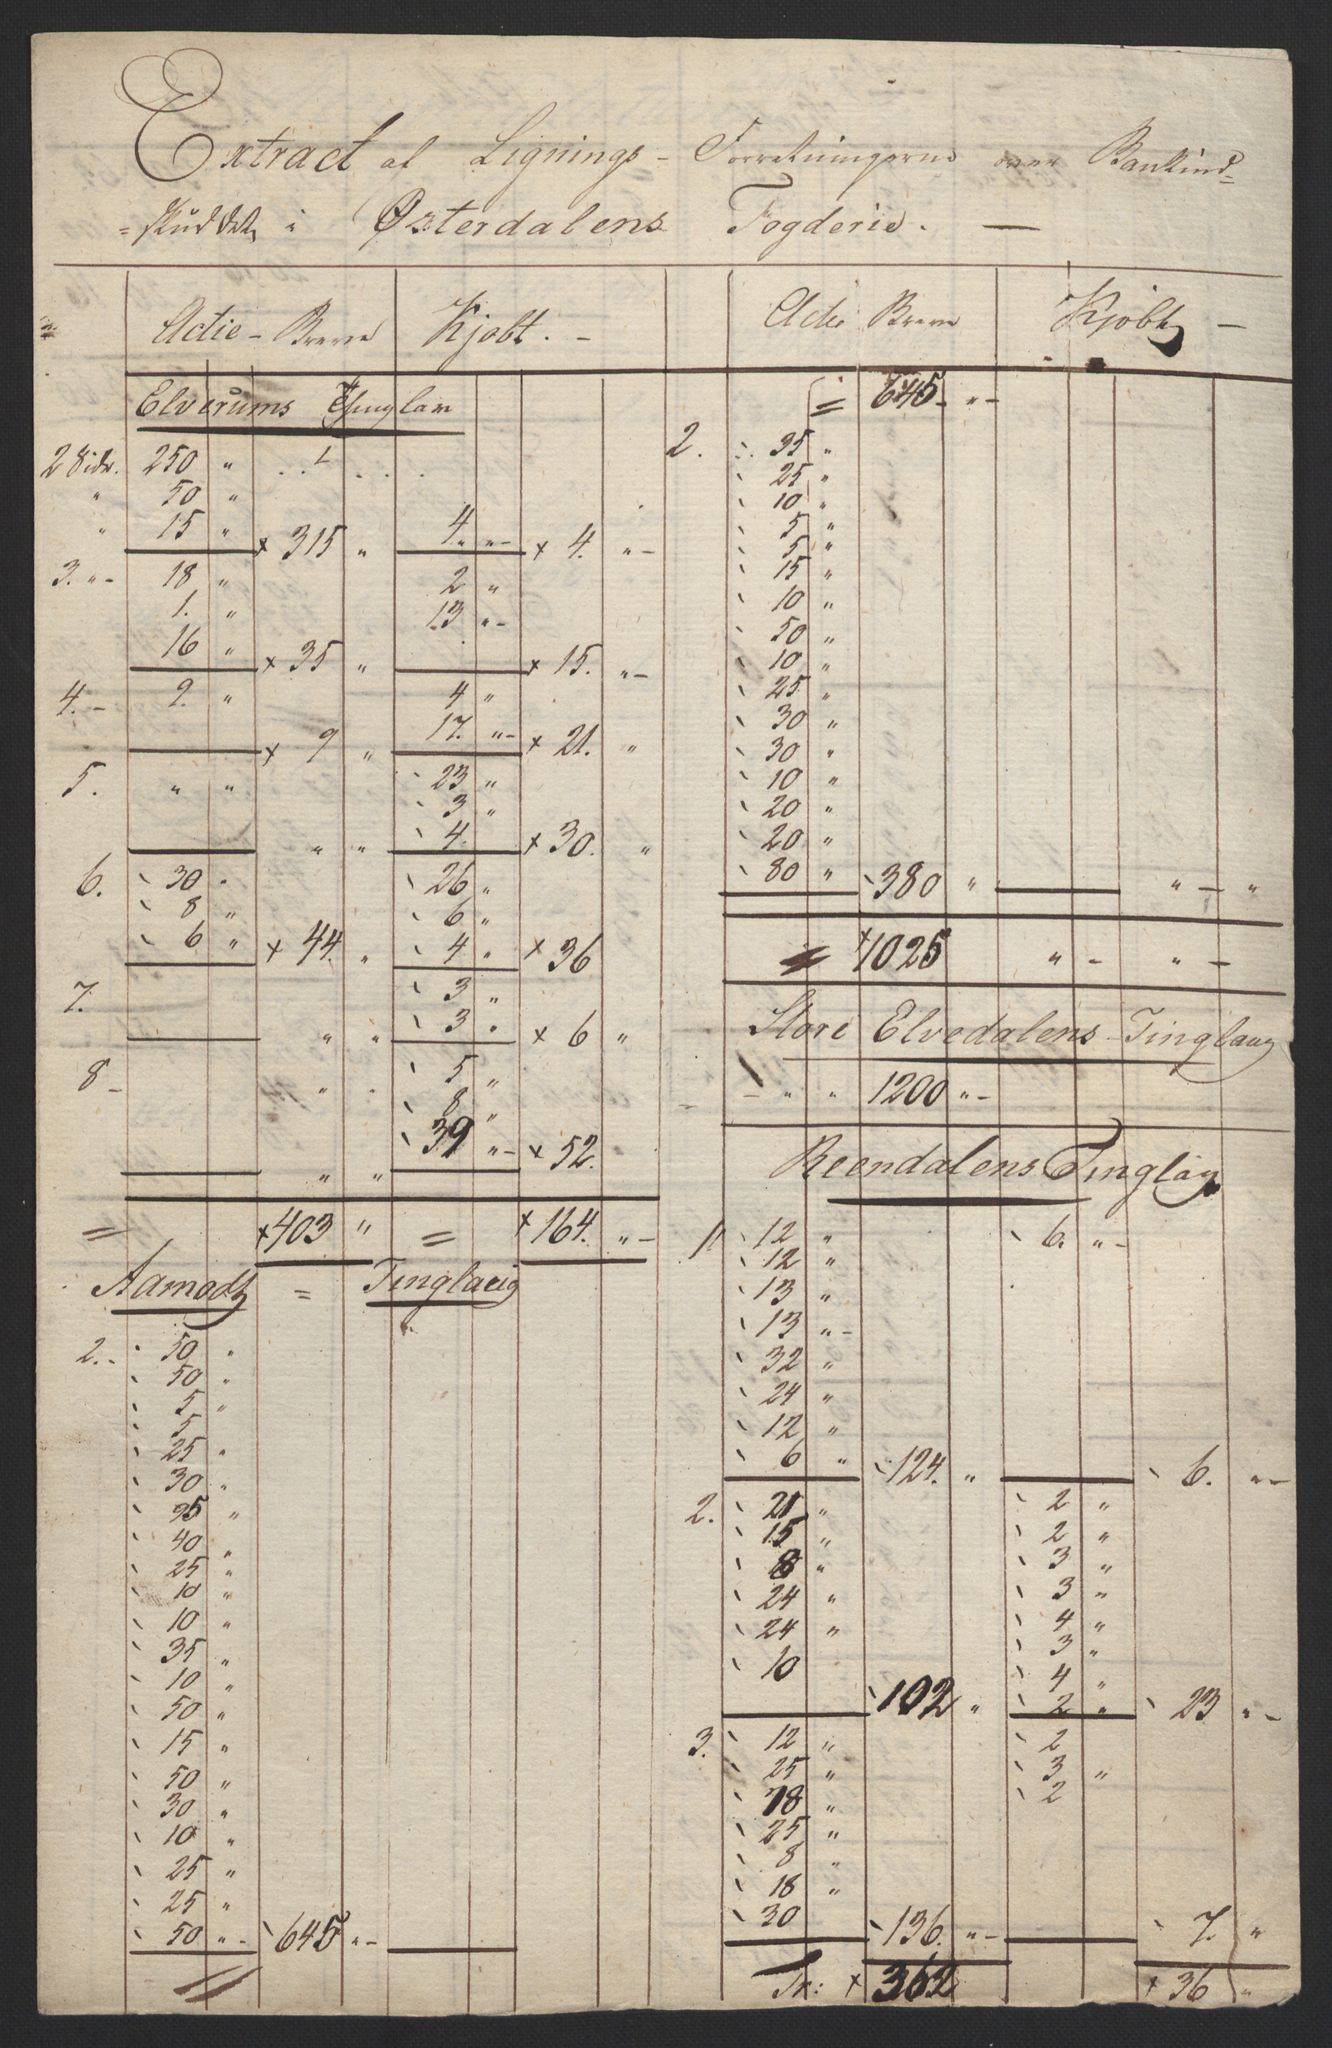 Extract af Lignings- Forretningerne over Bankind=
=skuddet, i Østerdalens Fogderie. —
Actie - Breve Kjøbt. -
Elverums Tinglav
2 Sidr. 250 "
" 50 "
" 15 " × 315 " 4. " - × 4. " -
3. " - 18 " 2 "
1. " 13 " -
16 " × 35 " × 15. " -
4. - 9. " 4 "
× 9 " 17. " - × 21. "
5. " " 23 "
3 "
" " 4. × 30. "
6. 30 " 26 "
8 " 6 "
6 " × 44. " 4 " × 36
7. 3 "
" " 3 " × 6 "
8 - " " 5 "
8 "
39 " - × 52.
" "
= × 403 " = × 164. " -
Aamodts = Tinglaug
2. - 50 "
50 "
5 "
5
25 "
30 "
95 "
40 "
25 "
10 "
10 "
35 "
10 "
50 "
15 "
50 "
30 "
10 "
25 "
25 "
50 " - 645 " -
Actie Breve Kjøbt -
= 645 - " -
2. 35 "
25 "
10 "
5 "
5 "
15 "
10 "
50 "
10 "
25 "
30 "
30 "
10 "
20 "
20 "
80 " 380 " " - "
= × 1025 " - " -
Store Elvedalens Tinglaug
- " " 1200 " -
Reendalens Tinglaug
1. 12 " 6. " -
12 "
13 "
13 " -
32 "
24 "
12 "
6 " 124. " 6. " -
2. 21 " 2 "
15 " 2 "
8 " 3 "
24 " 3 "
24 " 4 "
10 3 "
4 "
102 " 2 " 23 " -
3. 12 " 2
25 " 3 "
18 " 2
25 "
8 "
18 "
30 136. " - 7. "
Tr: × 362 × 36 "